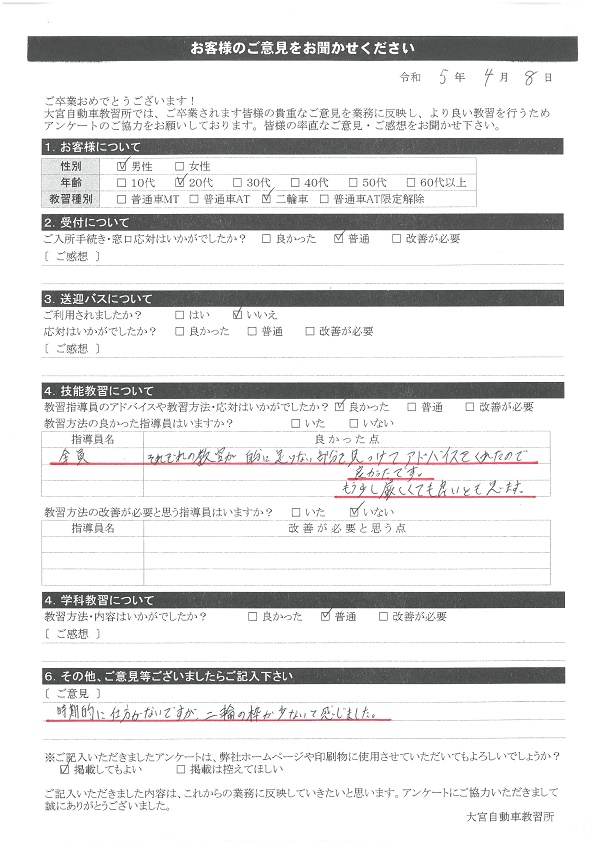 お客様のご意見をお聞かせください
令和 5 年 4 月 8 日
ご卒業おめでとうございます！
大宮自動車教習所では、ご卒業されます皆様の貴重なご意見を業務に反映し、より良い教習を行うため
アンケートのご協力をお願いしております。皆様の率直なご意見・ご感想をお聞かせ下さい。
1. お客様について
性別 ☑男性 □女性
年齢 □10代 ☑20代 □30代 □40代 □50代 □60代以上
教習種別 □普通車MT □普通車AT ☑二輪車 □普通車AT限定解除
2. 受付について
ご入所手続き・窓口応対はいかがでしたか？ □良かった ☑普通 □改善が必要
[ ご感想 ]
3. 送迎バスについて
ご利用されましたか？ □はい ☑いいえ
応対はいかがでしたか？ □良かった □普通 □改善が必要
[ ご感想 ]
4. 技能教習について
教習指導員のアドバイスや教習方法・応対はいかがでしたか？ ☑良かった □普通 □改善が必要
教習方法の良かった指導員はいますか？ □いた □いない
指導員名 良かった点
全員 それぞれの教官が 的に足りない部分を見つけてアドバイスをくれたので
良かったです。
もう少し厳しくても良いとも思います。
教習方法の改善が必要と思う指導員はいますか？ □いた ☑いない
指導員名 改善が必要と思う点
4. 学科教習について
教習方法・内容はいかがでしたか？ □良かった ☑普通 □改善が必要
[ ご感想 ]
6. その他、ご意見等ございましたらご記入下さい
[ ご意見 ]
時期的に仕方がないですが、二輪の枠が少ないと感じました。
※ご記入いただきましたアンケートは、弊社ホームページや印刷物に使用させていただいてもよろしいでしょうか？
☑掲載してもよい □掲載は控えてほしい
ご記入いただきました内容は、これからの業務に反映していきたいと思います。アンケートにご協力いただきまして
誠にありがとうございました。
大宮自動車教習所